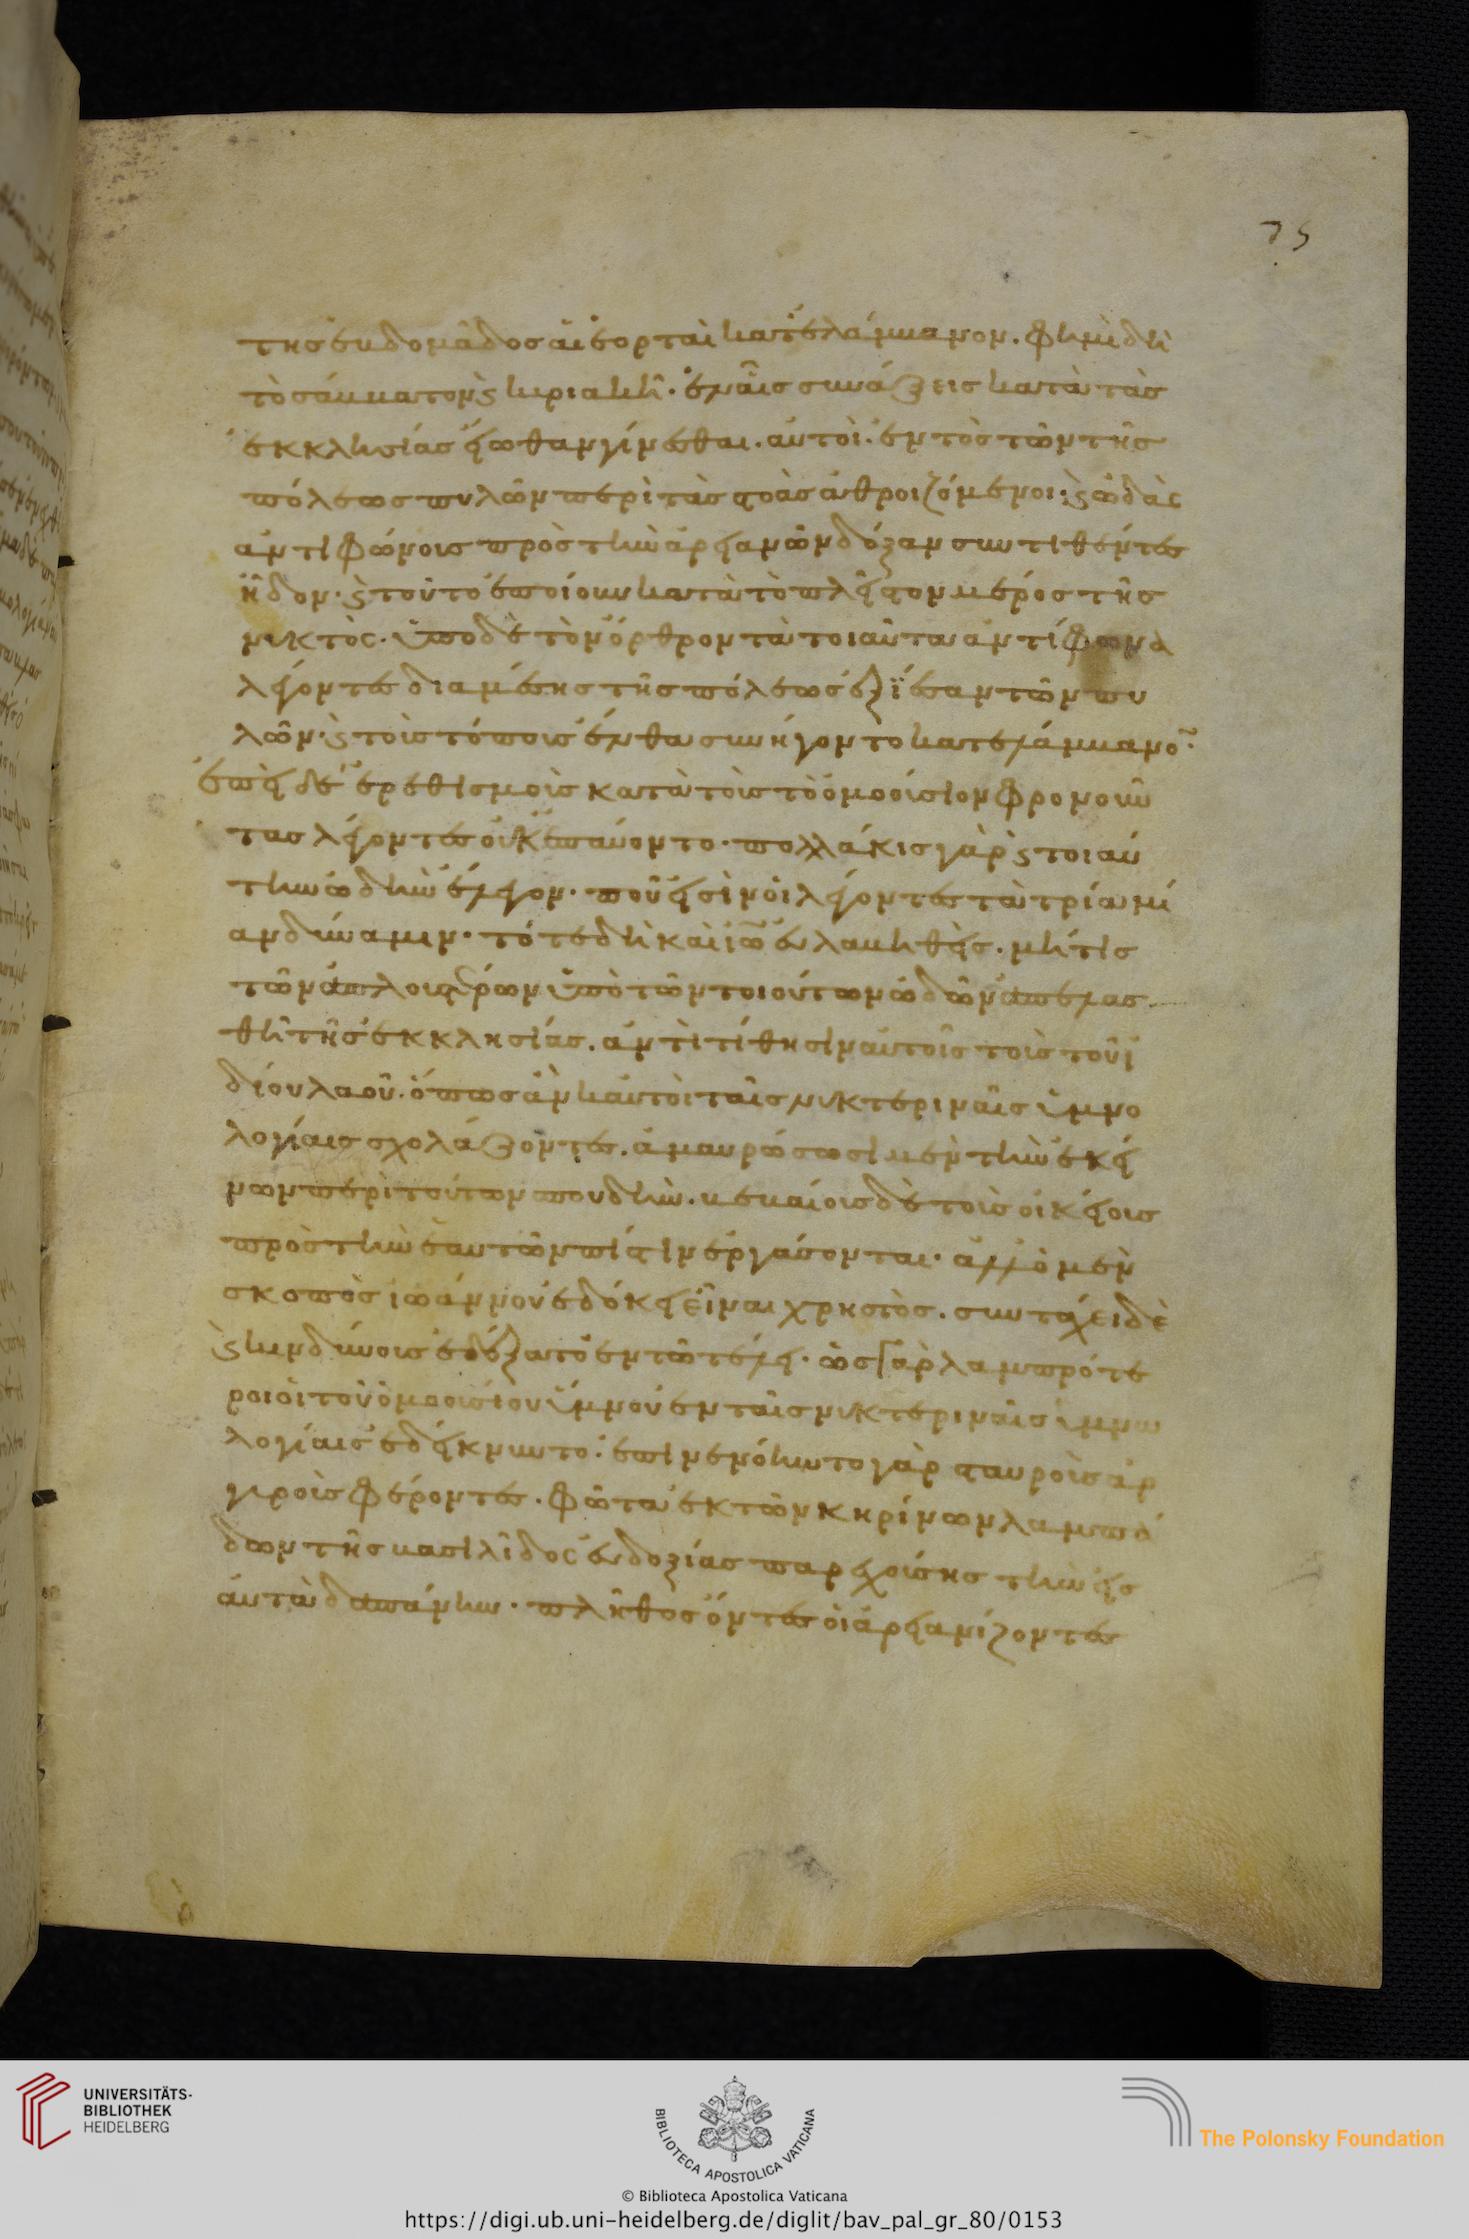 75
της ἑβδομάδος αἱ ἑορταὶ κατελάμβανον. φημὶ δὴ
τὸ σάββατον ϛ κυριακὴ. ἐν αἷς συνάξεις κατὰ τὰς
ἐκκλησίας εἰώθαν γίνεσθαι. αὐτοὶ ἐντὸς τῶν τῆς
πόλεως πυλῶν περὶ τὰς στοὰς ἀθροιζόμενοι. ϛ ὠδὰς
ἀντιφώνοις πρὸς τὴν ἀρειανῶν δόξαν συντιθέντες
ἦδον. ϛ τοῦτο ἐποίουν κατὰ τὸ πλεῖστον μέρος τῆς
νυκτὸς. ὑπο δὲ τὸν ὄρθρον τὰ τοιαῦτα ἀντίφωνα
λέγοντες δια μέσης τῆς πόλεως ἐξίεσαν τῶν πυ
λῶν. ϛ τοῖς τόποις ἔνθα συνήγοντο κατελάμβανον.
ἐπεὶ δὲ ἐρεθισμοῖς κατὰ τοῖς τὸ ὁμοούσιον φρονοῦν
τας λέγοντες οὐκ ἐπαύοντο. πολλάκις γὰρ ϛ τοιαύ
την ὠδὴν ἔλεγον. ποῦ εἰσὶν οἱ λέγοντες τὰ τρία μί
αν δύναμιν. τότε δὴ καὶ ἰω εὐλαβηθεὶς. μήτις
τῶν ἁπλουστέρων ὑπὸ τῶν τοιούτων ὠδῶν ἀπελας
θῆ τῆς ἐκκλησίας. ἀντιτίθησιν αὐτοῖς τοῖς τοῦ ἰ
δίου λαοῦ. ὅπως ἂν κ αὐτοὶ ταῖς νυκτεριναῖς ὑμνο
λογίαις σχολάζοντες. ἀμαυρώσωσι μὲν τὴν ἐκεί
νων περὶ τούτων σπουδὴν. βεβαίοις δὲ τοῖς οἰκείοις
πρὸς τὴν ἑαυτῶν πίστιν ἐργάσονται. ἀλλ ὁ μὲν
σκοπὸς ἰωάννου ἐδόκει εἶναι χρηστὸς. συν ταραχεῖ δὲ
ϛ κινδύνοις ἐδέξατο ἐν τῶ τέλει. ὡς γὰρ λαμπρότε
ροι οἱ τοῦ ὁμοουσίου ὕμνου ἐν ταῖς νυκτεριναῖς ὑμνω
λογίαις ἐδείκνυντο. ἐπινενόηντο γὰρ σταυροῖς ἀρ
γυροῖς φέροντες. φῶτα ἐκ τῶν κηρίνων λαμπά
δων τῆς βασιλίδος εὐδοξίας παρεχούσης τὴν εἰς
αὐτὰ δαπάνην. πλῆθος ὄντες οἱ ἀρειανίζοντες
UNIVERSITÄTS-
BIBLIOTHEK
HEIDELBERG
BIBLIOTECA APOSTOLICA VATICANA
The Polonsky Foundation
© Biblioteca Apostolica Vaticana
https://digi.ub.uni-heidelberg.de/diglit/bav_pal_gr_80/0153